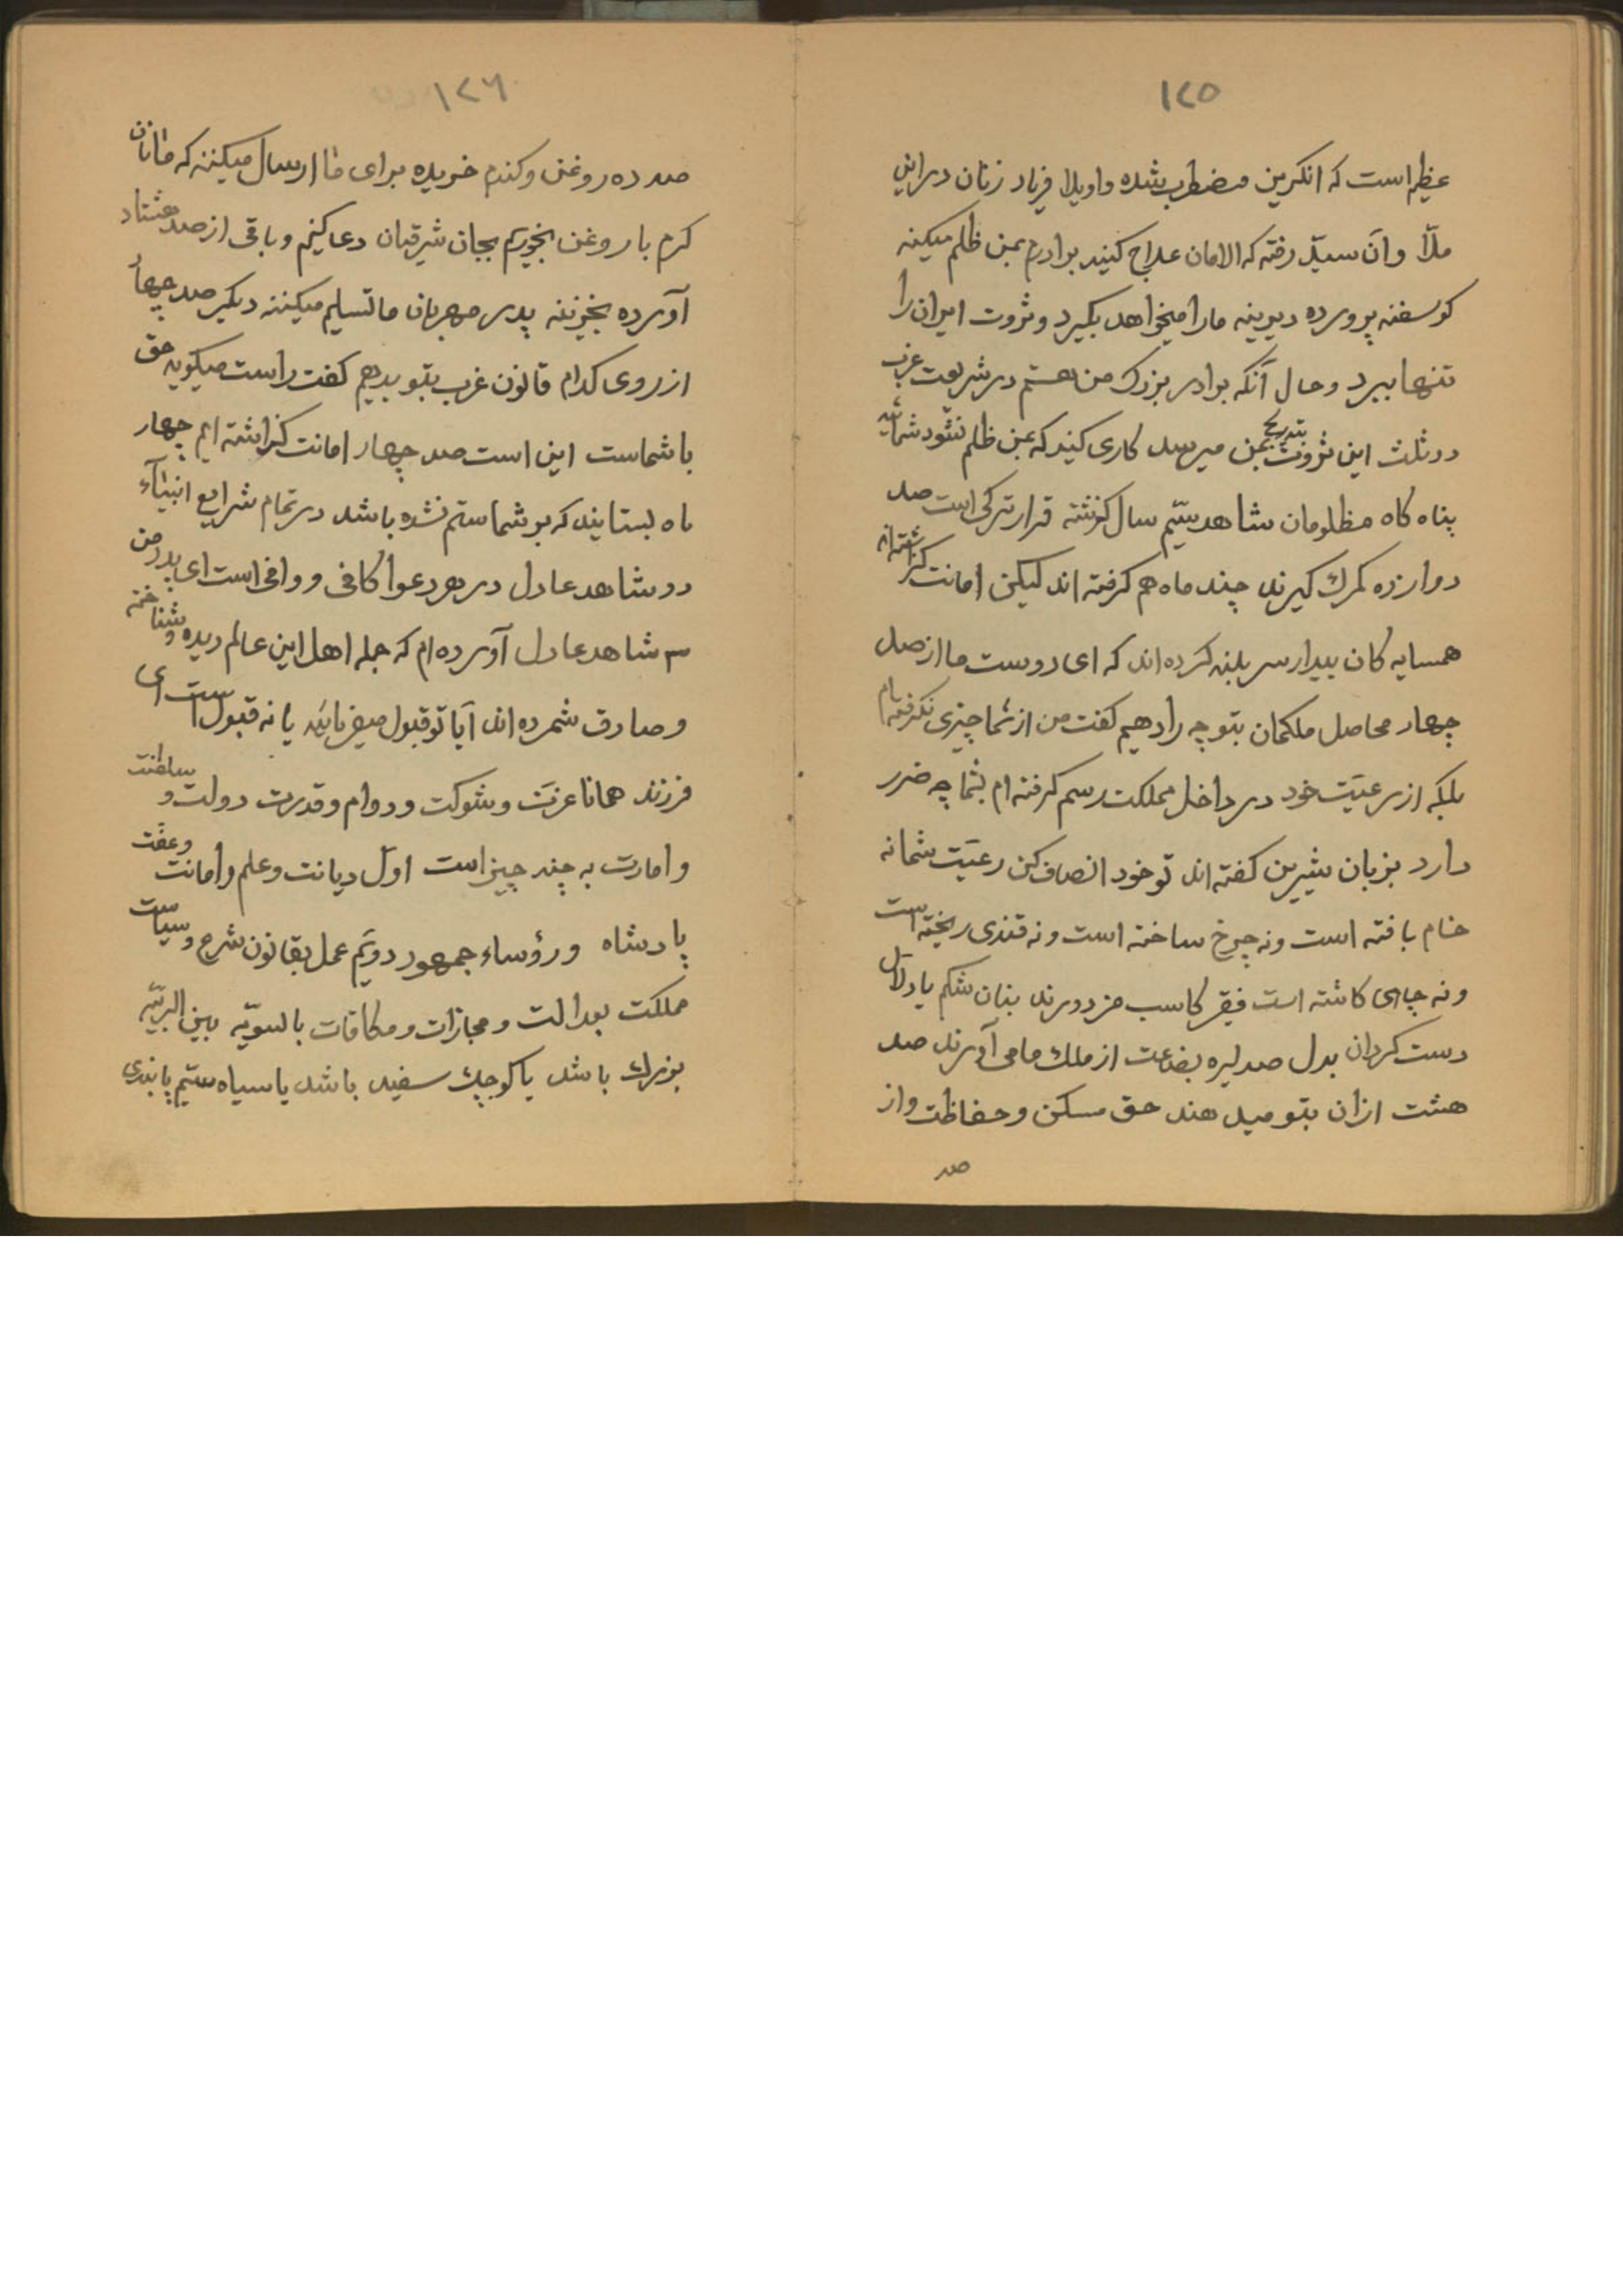 ١٢٥
عظیم است که انکریز مضطرب شده واویلا فریاد زنان در این
ملّا وآن سیّد رفته که الامان علاج کنید برادرم بمن ظلم میکینه
کوسفنه پرورده دیرینه مارا میخواهد بکیرد وثروت ایران را
تنها ببرد وحال آنکه برادر بزرک من هستم در شریعت غرب
دو ثلث این ثروت بتدریج بمن میرسد کاری کنید که بمن ظلم نشود شمائید
پناه کاه مظلومان شاهد سیّم سال کزشته قرار ترکی است صد
دوازده کمرك کیرند چند ماه هم کرفته اند لیکن امانت کزاشته اند
همسایه کان بیدار سر بلند کرده اند که ای دوست ما از صد
چهار محاصل ملکمان بتو چه را دهیم کفت من از شما چیزی نکرفته ام
بلکه از رعیّت خود در داخل مملکت رسم کرفته ام بشما چه ضرر
دارد بزبان شیرین کفته اند تو خود انصاف کن رعیّت شما نه
خام بافته است ونه چرخ ساخته است ونه قندی ریخته است
ونه چاهی کاشته است فقیر کاسب مزدورند بنان شکم یا دلال
دست کردان بدل صد لیره بضاعت از ملك ما می آورند صد
هشت ازان بتو میدهند حق مسکن وحفاظت واز
صد
١٢٦
صد ده روغن وکندم خریده برای ما ارسال میکننه که ما نان
کرم با روغن بخوریم بجان شرقیان دعا کنیم وباقی از صد هشتاد
آورده بخزینه پدر مهربان ما تسلیم میکننه دیکر صد چهار
از روی کدام قانون غرب بتو بدهیم کفت راست میکویه حق
با شماست این است صد چهار امانت کزاشته ایم چهار
ماه بستایند که بر شما ستم نشده باشد در تمام شرایع انبیآء
دو شاهد عادل در هر دعوا کافی ووافی است ای پدر من
سه شاهد عادل آورده ام که جمله اهل این عالم دیده وشناخته
وصادق شمرده اند آیا تو قبول میفرمائید یا نه قبول است ای
فرزند همانا عزّت وشوکت ودوام وقدرت دولت وسلطنت
وامارت به چند چیز است اوّل دیانت وعلم وامانت وعفّت
پادشاه ورؤساء جمهور دویّم عمل بقانون شرع وسیاست
مملکت بعدالت ومجازات ومکافات بالسویّه بین البریّه
بزرك باشد یا کوچك سفید باشد یا سیاه سیّم پابندی